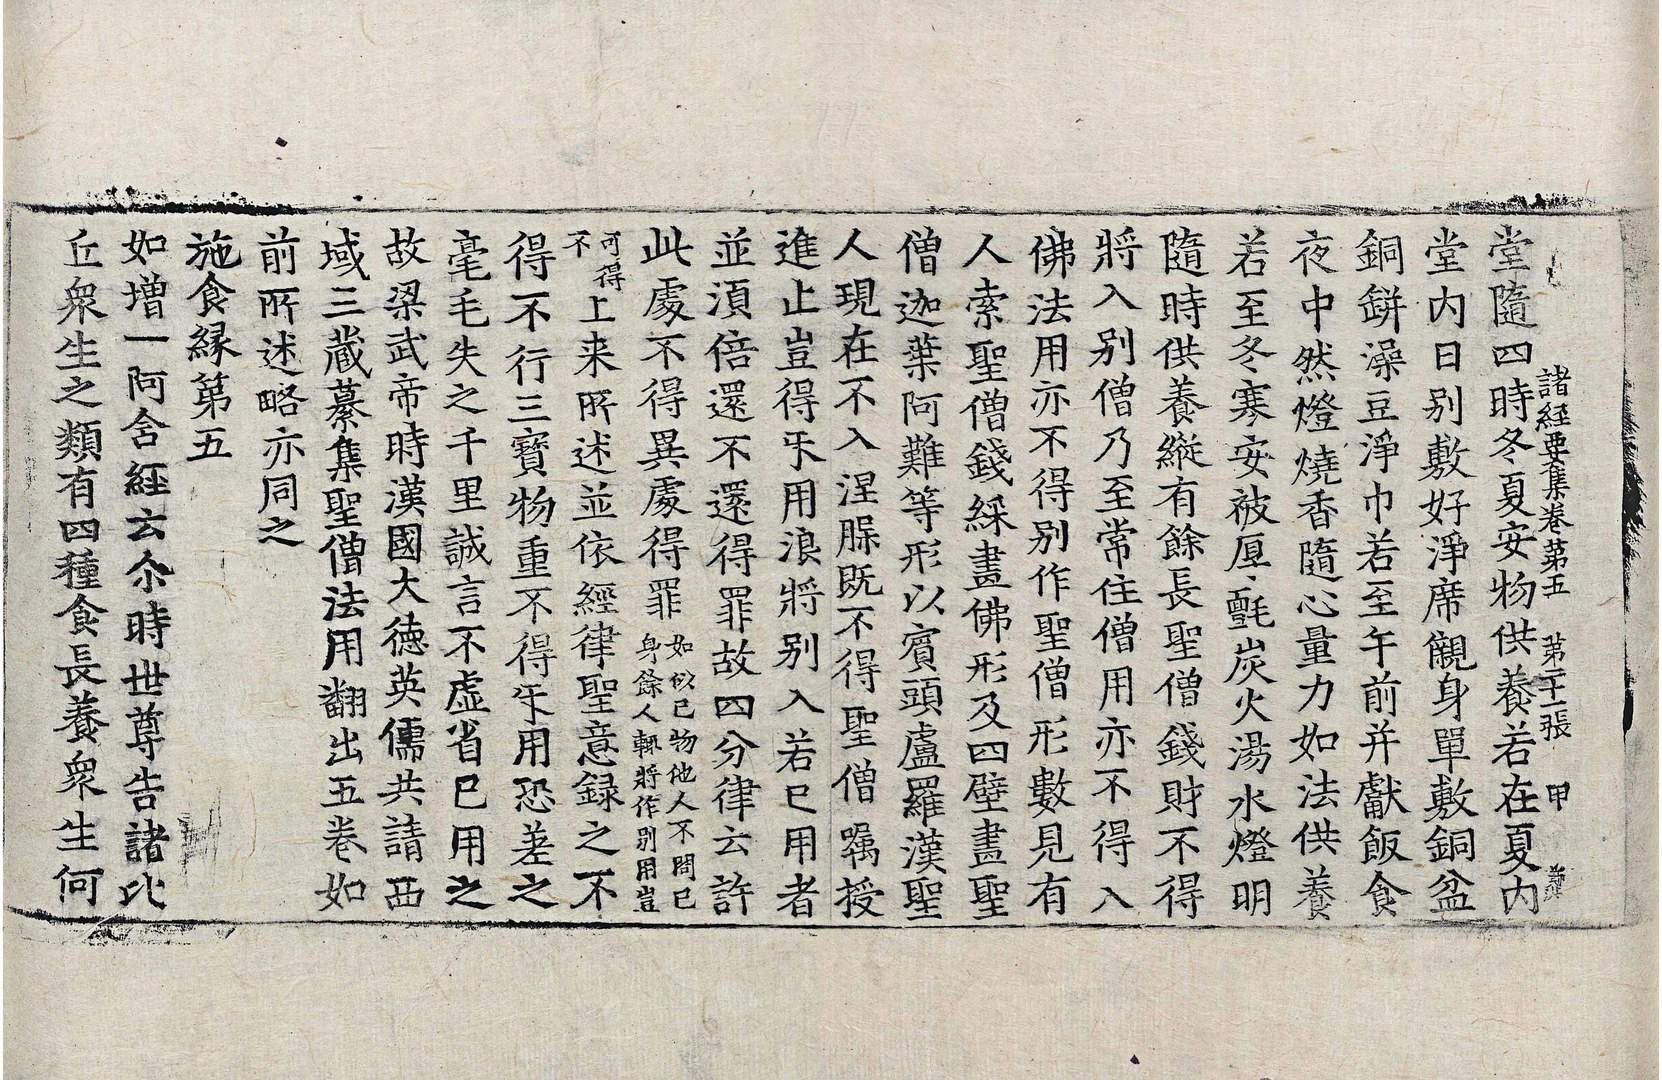 諸經要集卷第五 第三十二張 甲
堂隨四時冬夏安物供養若在夏內
堂內日別敷好淨席儭身單敷銅盆
銅鉼澡豆淨巾若至午前并獻飯食
夜中然燈燒香隨心量力如法供養
若至冬寒安被厚氈炭火湯水燈明
隨時供養縱有餘長聖僧錢財不得
將入別僧乃至常住僧用亦不得入
佛法用亦不得別作聖僧形數見有
人索聖僧錢綵畫佛形及四壁畫聖
僧迦葉阿難等形以賓頭盧羅漢聖
人現在不入涅腺既不得聖僧囑授
進止豈得乐用浪將別入若已用者
並湏倍還不還得罪故四分律云許
此處不得異處得罪如似己物他人不問己
身餘人輙將作別用豈
可得
不得上来所述並依經律聖意録之不
得不行三寶物重不得乐用恐差之
毫毛失之千里誠言不虛省已用之
故梁武帝時漢國大德英儒共請西
域三藏纂集聖僧法用翻出五卷如
前所述略亦同之
施食緣第五
如增一阿含經云尒時世尊告諸比
丘衆生之類有四種食長養衆生何